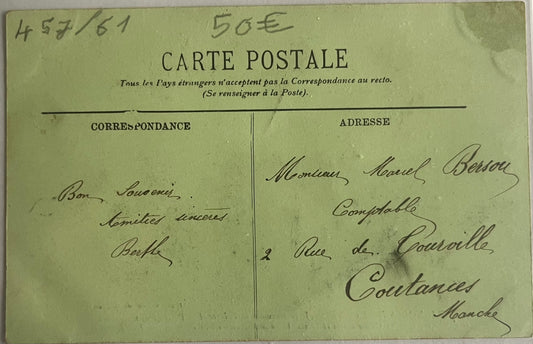 457/61 50€
CARTE POSTALE
Tous les Pays étrangers n'acceptent pas la Correspondance au recto.
(Se renseigner à la Poste).
CORRESPONDANCE
Bon Souvenir.
Amitiés sincères
Berthe
ADRESSE
Monsieur Marcel Bersou
Comptable
2 Rue de Tourville
Coutances
Manche